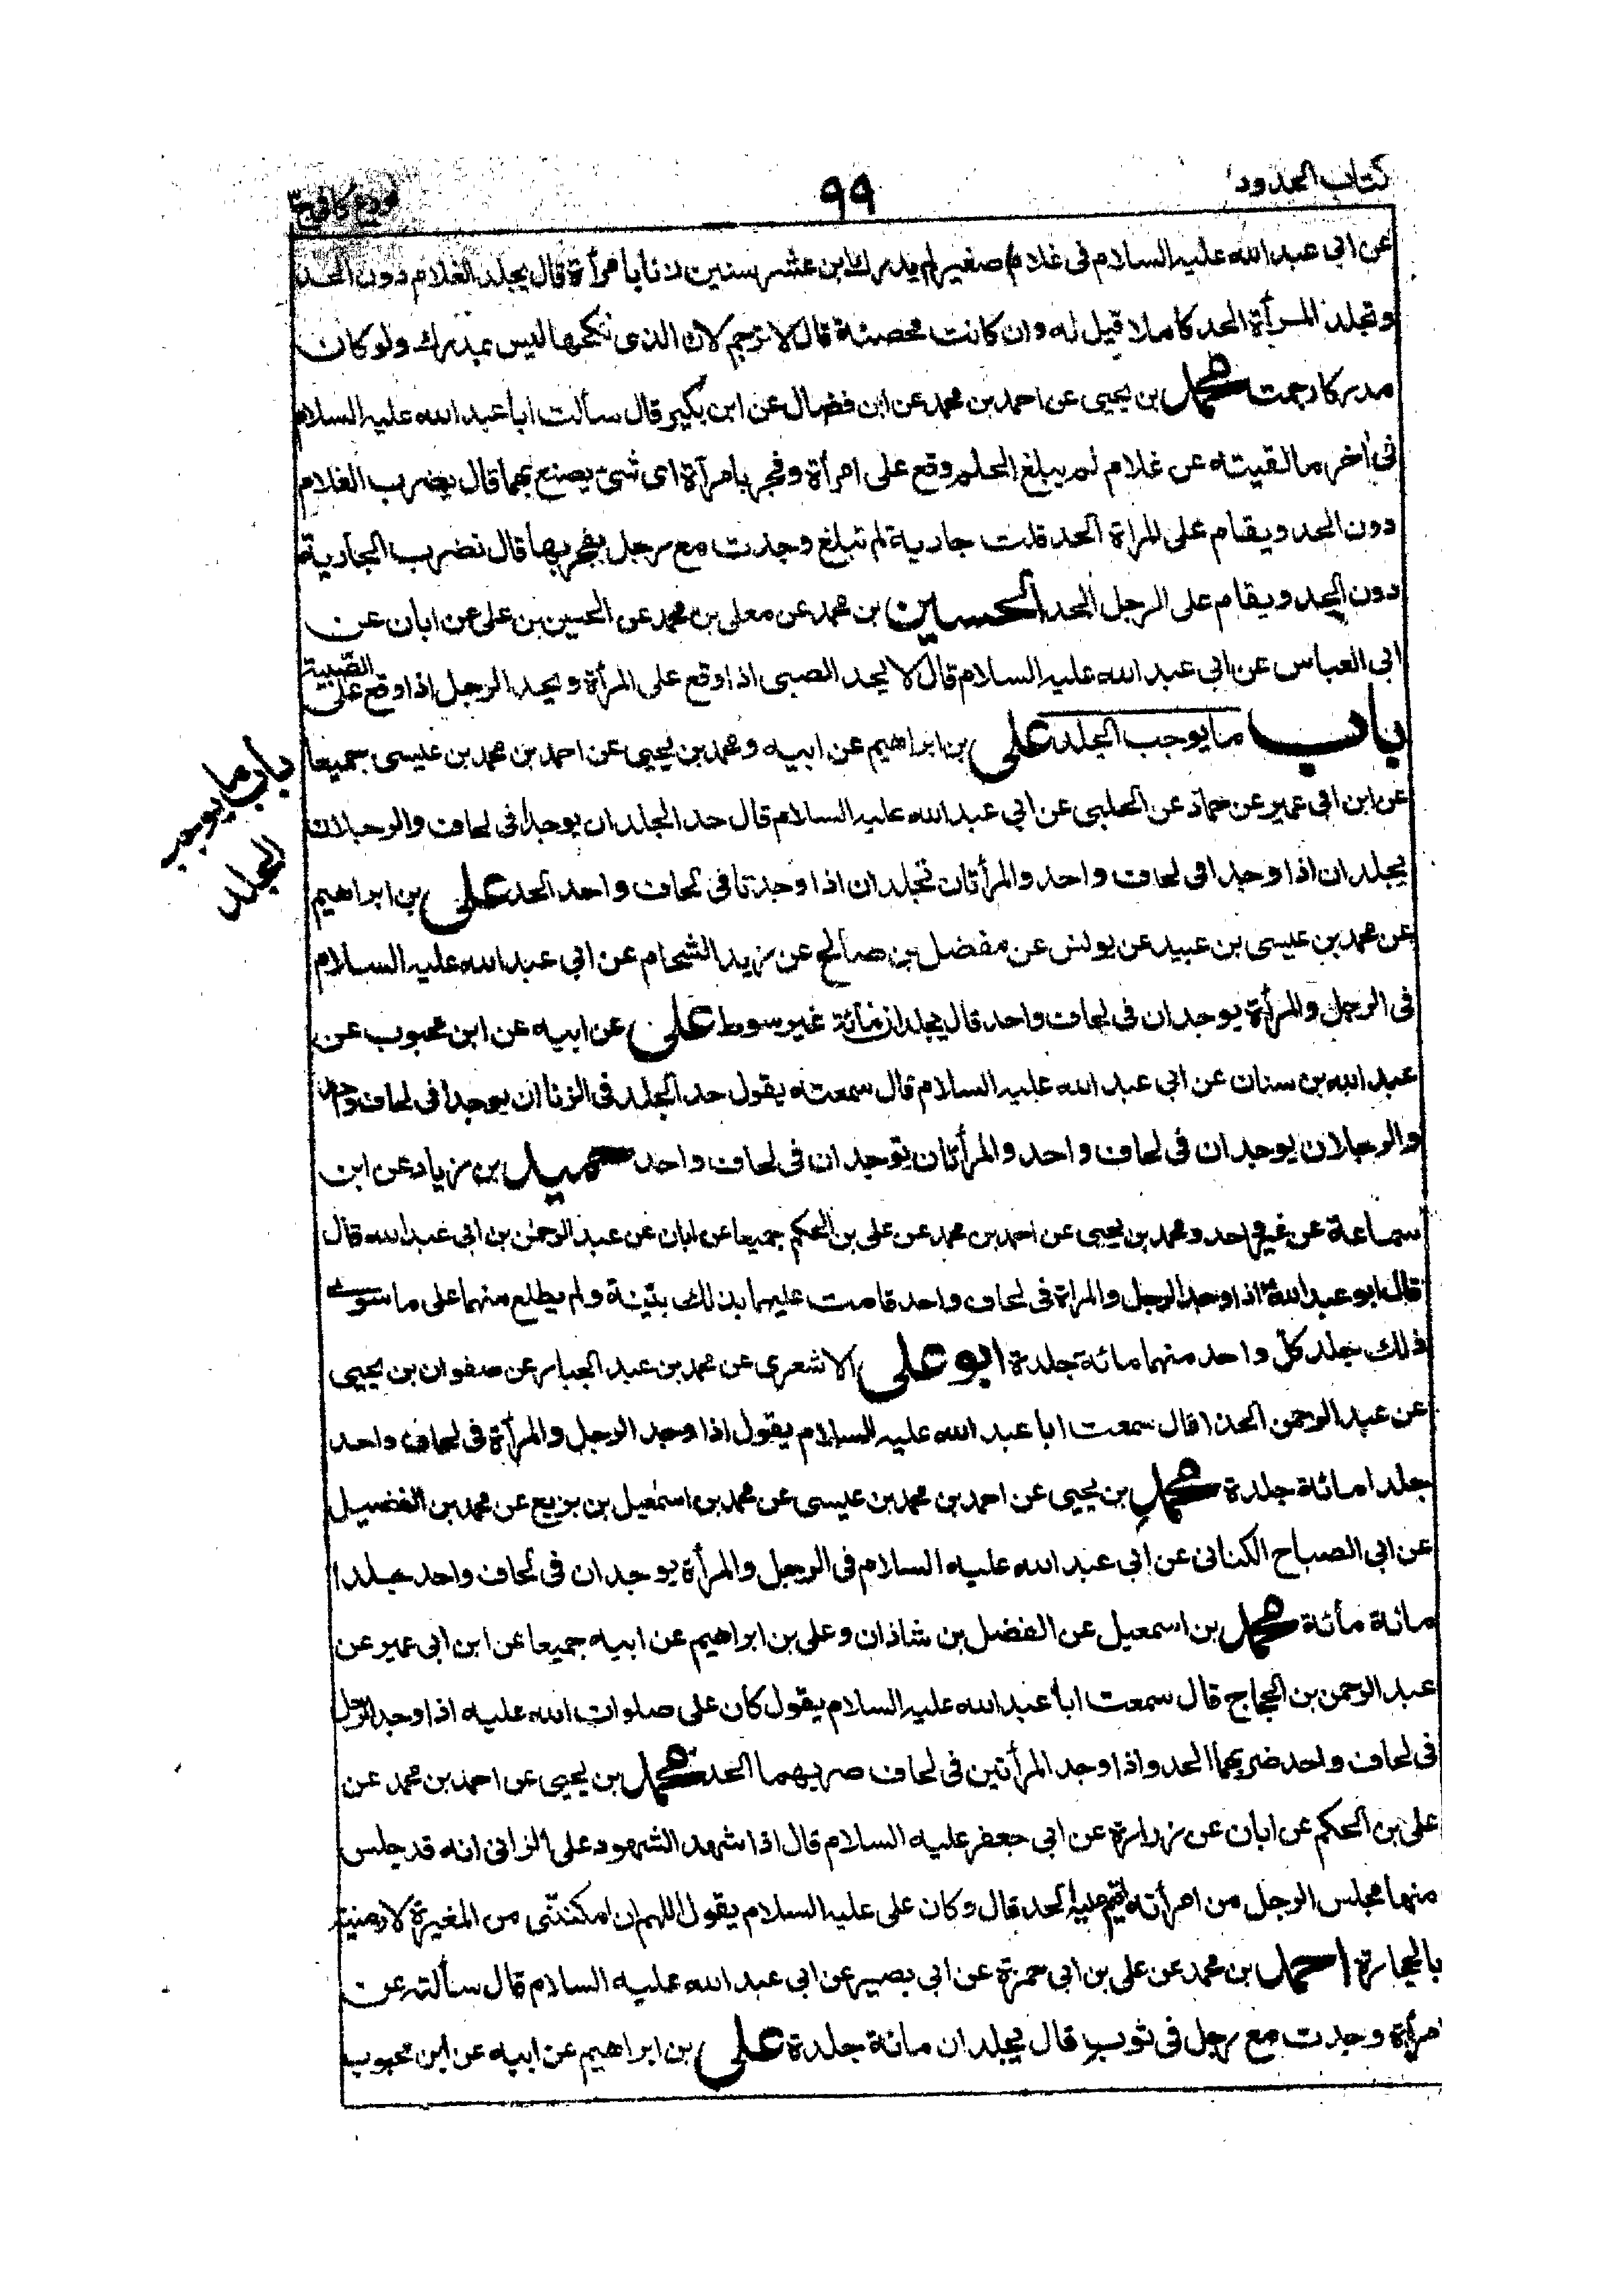 كتاب الحدود
٩٩
فروع كافي ج ٣
عن ابي عبد الله عليه السلام في غلام صغير لم يدرك ابن عشر سنين زنا بامرأة قال يجلد الغلام دون الحد
وتجلد المرأة الحد كاملا قيل له وان كانت محصنة قال لا ترجم لان الذي نكحها ليس بمدرك ولو كان
مدركا رجمت محمد بن يحيى عن احمد بن محمد عن ابن فضال عن ابن بكير قال سألت ابا عبد الله عليه السلام
في أخر ما لقيته عن غلام لم يبلغ الحلم وقع على امرأة وفجر بامرأة اى شئ يصنع بهما قال يضرب الغلام
دون الحد ويقام على المرأة الحد قلت جارية لم تبلغ وجدت مع رجل يفجر بها قال تضرب الجارية
دون الحد ويقام على الرجل الحد الحسين بن محمد عن معلى بن محمد عن الحسين بن على عن ابان عن
ابي العباس عن ابي عبد الله عليه السلام قال لا يحد الصبى اذا وقع على المرأة ويحد الرجل اذا وقع على الصبية
باب ما يوجب الجلد على بن ابراهيم عن ابيه ومحمد بن يحيى عن احمد بن محمد بن عيسى جميعا
باب ما يوجب
الجلد
عن ابن ابي عمير عن حماد عن الحلبي عن ابي عبد الله عليه السلام قال حد الجلد ان يوجدا في لحاف والرجلان
يجلدان اذا وجدا في لحاف واحد والمرأتان تجلدان اذا وجدتا في لحاف واحد الحد على بن ابراهيم
عن محمد بن عيسى بن عبيد عن يونس عن مفضل بن صالح عن زيد الشحام عن ابي عبد الله عليه السلام
في الرجل والمرأة يوجدان في لحاف واحد قال يجلدان مائة غير سوط على عن ابيه عن ابن محبوب عن
عبد الله بن سنان عن ابي عبد الله عليه السلام قال سمعته يقول حد الجلد في الزنا ان يوجدا في لحاف واحد
والرجلان يوجدان في لحاف واحد والمرأتان توجدان في لحاف واحد حميد بن زياد عن ابن
سماعة عن غير واحد ومحمد بن يحيى عن احمد بن محمد عن على بن الحكم جميعا عن ابان عن عبد الرحمن بن ابي عبد الله قال
قال ابو عبد الله ع اذا وجد الرجل والمراة في لحاف واحد قامت عليهما بذلك بينة ولم يطلع منهما على ما سوى
ذلك جلد كل واحد منهما مائة جلدة ابو على الاشعرى عن محمد بن عبد الجبار عن صفوان بن يحيى
عن عبد الرحمن الحذا قال سمعت ابا عبد الله عليه السلام يقول اذا وجد الرجل والمرأة في لحاف واحد
جلدا مائة جلدة محمد بن يحيى عن احمد بن محمد بن عيسى عن محمد بن اسمعيل بن بزيع عن محمد بن الفضيل
عن ابي الصباح الكناني عن ابي عبد الله عليه السلام في الرجل والمرأة يوجدان في لحاف واحد جلدا
مائة مأئة محمد بن اسمعيل عن الفضل بن شاذان وعلى بن ابراهيم عن ابيه جميعا عن ابن ابي عمير عن
عبد الرحمن بن الحجاج قال سمعت ابا عبد الله عليه السلام يقول كان على صلوات الله عليه اذا وجد الرجل
في لحاف واحد ضربهما الحد واذا وجد المرأتين في لحاف ضربهما الحد محمد بن يحيى عن احمد بن محمد عن
على بن الحكم عن ابان عن زرارة عن ابي جعفر عليه السلام قال اذا شهد الشهود على الزاني انه قد جلس
منها مجلس الرجل من امرأته اقيم عليه الحد قال وكان على عليه السلام يقول اللهم ان امكنتني من المغيرة لارمينه
بالحجارة احمد بن محمد عن على بن ابي حمزة عن ابي بصير عن ابي عبد الله عليه السلام قال سألته عن
امرأة وجدت مع رجل في ثوب قال يجلدان مائة جلدة على بن ابراهيم عن ابيه عن ابن محبوب